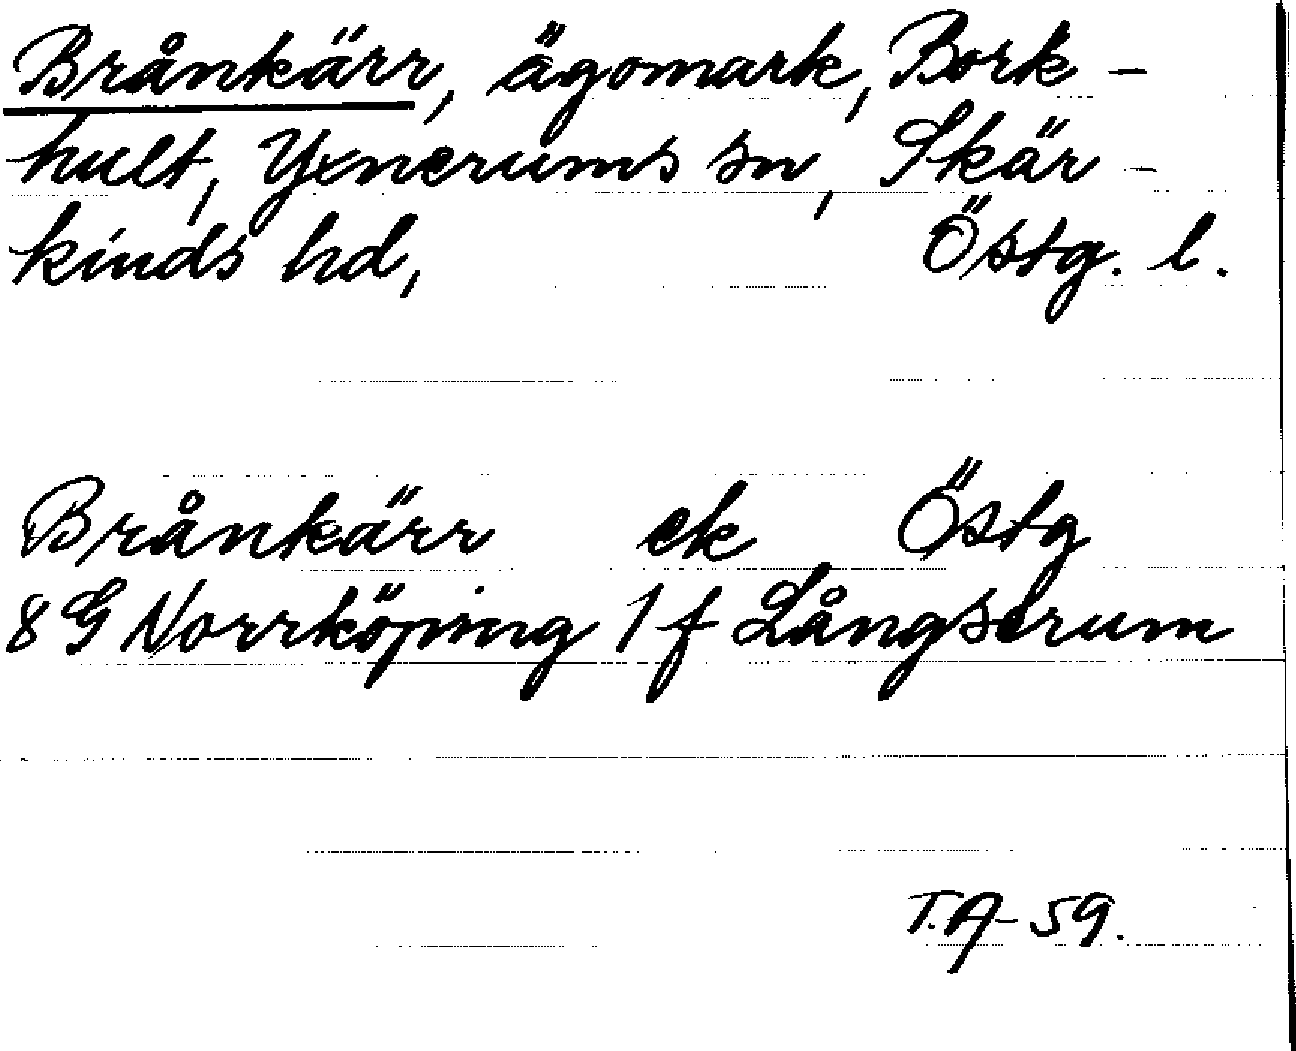 Brånkärr, ägomark, Bork-
hult, Yxnerums sn, Skär-
kinds hd, Östg. l.
Brånkärr ek Östg
8G Norrköping 1f Långserum
T.A-59.